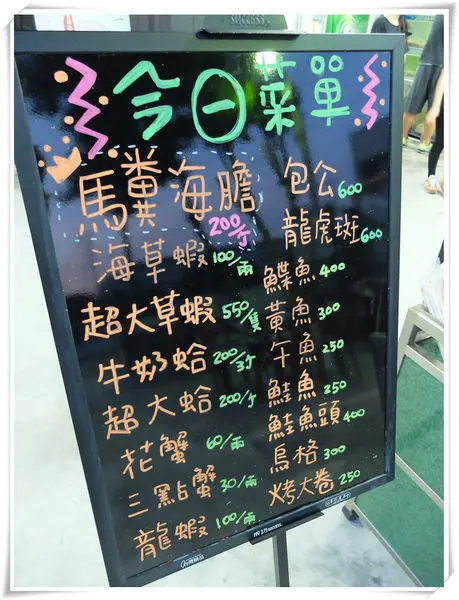 SUCCESS
今日菜單
馬糞海膽
200/個
海草蝦 100/兩
超大草蝦 550/隻
牛奶蛤 200/3個
超大蛤 200/個
花蟹 60/兩
三點蟹 30/兩
龍蝦 100/兩
包公 600
龍虎斑 600
鰈魚 400
黃魚 300
午魚 250
鮭魚 250
鮭魚頭 400
烏格 300
烤大卷 250